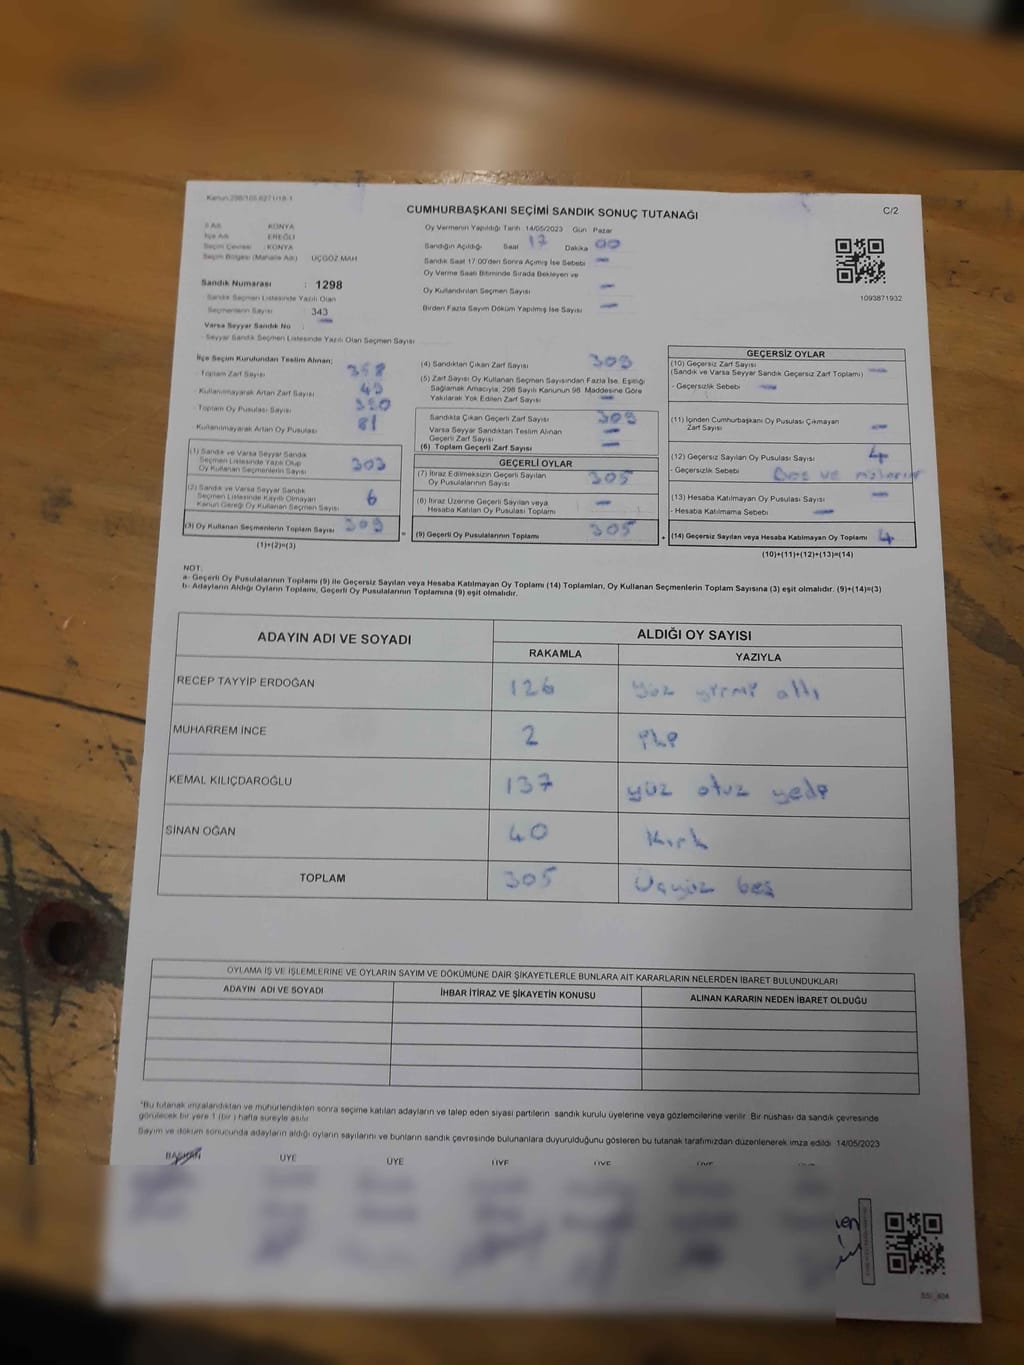 Kanun:298/105,6271/18-1
CUMHURBAŞKANI SEÇİMİ SANDIK SONUÇ TUTANAĞI
C/2
İl Adı KONYA
İlçe Adı EREĞLİ
Seçim Çevresi : KONYA
Seçim Bölgesi (Mahalle Adı) ÜÇGÖZ MAH
Oy Vermenin Yapıldığı Tarih 14/05/2023 Gün Pazar
Sandığın Açıldığı Saat 17 Dakika 00
Sandık Saat 17:00'den Sonra Açılmış İse Sebebi —
Oy Verme Saati Bitiminde Sırada Bekleyen ve
Oy Kullandırılan Seçmen Sayısı —
Birden Fazla Sayım Döküm Yapılmış İse Sayısı —
1093871932
Sandık Numarası : 1298
Sandık Seçmen Listesinde Yazılı Olan
Seçmenlerin Sayısı 343
Varsa Seyyar Sandık No : —
Seyyar Sandık Seçmen Listesinde Yazılı Olan Seçmen Sayısı
İlçe Seçim Kurulundan Teslim Alınan;
Toplam Zarf Sayısı 358
Kullanılmayarak Artan Zarf Sayısı 49
Toplam Oy Pusulası Sayısı
Kullanılmayarak Artan Oy Pusulası 81
(1) Sandık ve Varsa Seyyar Sandık
Seçmen Listesinde Yazılı Olup
Oy Kullanan Seçmenlerin Sayısı 303
(2) Sandık ve Varsa Seyyar Sandık
Seçmen Listesinde Kayıtlı Olmayan
Kanun Gereği Oy Kullanan Seçmen Sayısı 6
(3) Oy Kullanan Seçmenlerin Toplam Sayısı 309
(1)+(2)=(3)
(4) Sandıktan Çıkan Zarf Sayısı 309
(5) Zarf Sayısı Oy Kullanan Seçmen Sayısından Fazla İse, Eşitliği
Sağlamak Amacıyla, 298 Sayılı Kanunun 98. Maddesine Göre
Yakılarak Yok Edilen Zarf Sayısı —
Sandıkta Çıkan Geçerli Zarf Sayısı 309
Varsa Seyyar Sandıktan Teslim Alınan
Geçerli Zarf Sayısı —
(6) Toplam Geçerli Zarf Sayısı —
GEÇERLİ OYLAR
(7) İtiraz Edilmeksizin Geçerli Sayılan
Oy Pusulalarının Sayısı 305
(8) İtiraz Üzerine Geçerli Sayılan veya
Hesaba Katılan Oy Pusulası Toplamı —
= (9) Geçerli Oy Pusulalarının Toplamı 305
GEÇERSİZ OYLAR
(10) Geçersiz Zarf Sayısı
(Sandık ve Varsa Seyyar Sandık Geçersiz Zarf Toplamı) —
- Geçersizlik Sebebi —
(11) İçinden Cumhurbaşkanı Oy Pusulası Çıkmayan
Zarf Sayısı —
(12) Geçersiz Sayılan Oy Pusulası Sayısı 4
- Geçersizlik Sebebi Boş ve
(13) Hesaba Katılmayan Oy Pusulası Sayısı —
- Hesaba Katılmama Sebebi —
+ (14) Geçersiz Sayılan veya Hesaba Katılmayan Oy Toplamı 4
(10)+(11)+(12)+(13)=(14)
NOT:
a- Geçerli Oy Pusulalarının Toplamı (9) ile Geçersiz Sayılan veya Hesaba Katılmayan Oy Toplamı (14) Toplamları, Oy Kullanan Seçmenlerin Toplam Sayısına (3) eşit olmalıdır. (9)+(14)=(3)
b- Adayların Aldığı Oyların Toplamı, Geçerli Oy Pusulalarının Toplamına (9) eşit olmalıdır.
ADAYIN ADI VE SOYADI
ALDIĞI OY SAYISI
RAKAMLA YAZIYLA
RECEP TAYYİP ERDOĞAN 126 yüz yirmi altı
MUHARREM İNCE 2 iki
KEMAL KILIÇDAROĞLU 137 yüz otuz yedi
SİNAN OĞAN 40 Kırk
TOPLAM 305 Üçyüz beş
OYLAMA İŞ VE İŞLEMLERİNE VE OYLARIN SAYIM VE DÖKÜMÜNE DAİR ŞİKAYETLERLE BUNLARA AİT KARARLARIN NELERDEN İBARET BULUNDUKLARI
ADAYIN ADI VE SOYADI İHBAR İTİRAZ VE ŞİKAYETİN KONUSU ALINAN KARARIN NEDEN İBARET OLDUĞU
*Bu tutanak imzalandıktan ve mühürlendikten sonra seçime katılan adayların ve talep eden siyasi partilerin sandık kurulu üyelerine veya gözlemcilerine verilir. Bir nüshası da sandık çevresinde
görülecek bir yere 1 (bir) hafta süreyle asılır.
Sayım ve döküm sonucunda adayların aldığı oyların sayılarını ve bunların sandık çevresinde bulunanlara duyurulduğunu gösteren bu tutanak tarafımızdan düzenlenerek imza edildi. 14/05/2023
BAŞKAN ÜYE ÜYE ÜYE ÜYE ÜYE